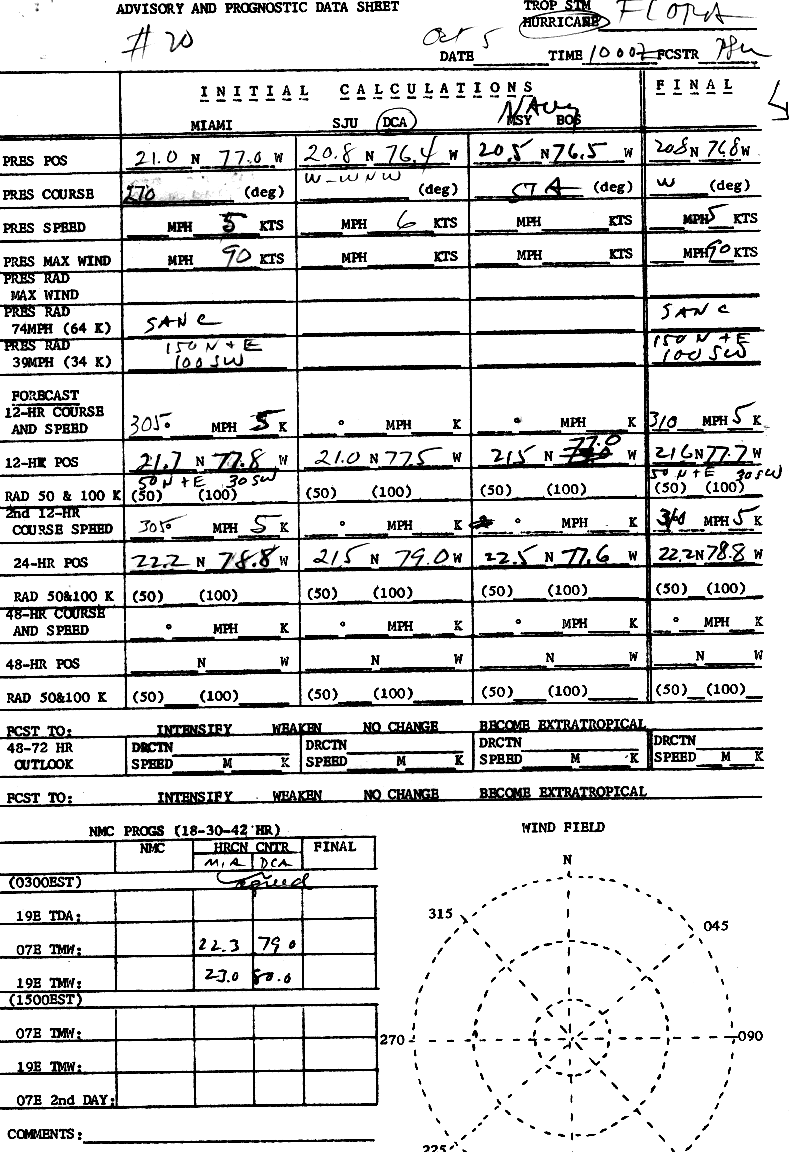 ADVISORY AND PROGNOSTIC DATA SHEET TROP STM
HURRICANE FLORA
# 20 Oct 5
DATE TIME 1000Z FCSTR
INITIAL CALCULATIONS FINAL
Navy
MIAMI SJU DCA MSY BOS
PRES POS 21.0 N 77.0 W 20.8 N 76.4 W 20.5 N 76.5 W 20.8 N 76.8 W
PRES COURSE 270 (deg) W-WNW (deg) STA (deg) W (deg)
PRES SPEED MPH 5 KTS MPH 6 KTS MPH KTS MPH 5 KTS
PRES MAX WIND MPH 90 KTS MPH KTS MPH KTS MPH 90 KTS
PRES RAD
MAX WIND
PRES RAD
74MPH (64 K) SAN C SAN C
PRES RAD 150 N + E 150 N + E
39MPH (34 K) 100 SW 100 SW
FORECAST
12-HR COURSE
AND SPEED 305° MPH 5 K ° MPH K ° MPH K 310 MPH 5 K
12-HR POS 21.7 N 77.8 W 21.0 N 77.5 W 21.5 N 77.0 W 21.6 N 77.7 W
50 N + E 30 SW 50 N + E 30 SW
RAD 50 & 100 K (50) (100) (50) (100) (50) (100) (50) (100)
2nd 12-HR
COURSE SPEED 305° MPH 5 K ° MPH K ° MPH K 310 MPH 5 K
24-HR POS 22.2 N 78.8 W 21.5 N 79.0 W 22.5 N 77.6 W 22.2 N 78.8 W
RAD 50&100 K (50) (100) (50) (100) (50) (100) (50) (100)
48-HR COURSE
AND SPEED ° MPH K ° MPH K ° MPH K ° MPH K
48-HR POS N W N W N W N W
RAD 50&100 K (50) (100) (50) (100) (50) (100) (50) (100)
FCST TO: INTENSIFY WEAKEN NO CHANGE BECOME EXTRATROPICAL
48-72 HR DRCTN DRCTN DRCTN DRCTN
OUTLOOK SPEED M K SPEED M K SPEED M K SPEED M K
FCST TO: INTENSIFY WEAKEN NO CHANGE BECOME EXTRATROPICAL
NMC PROGS (18-30-42 HR) WIND FIELD
NMC HRCN CNTR FINAL
MIA DCA N
(0300EST) agreed
19E TDA: 315 045
07E TMW: 22.3 79.0
19E TMW: 23.0 80.0
(1500EST)
07E TMW: 270 090
19E TMW:
07E 2nd DAY:
COMMENTS:
225